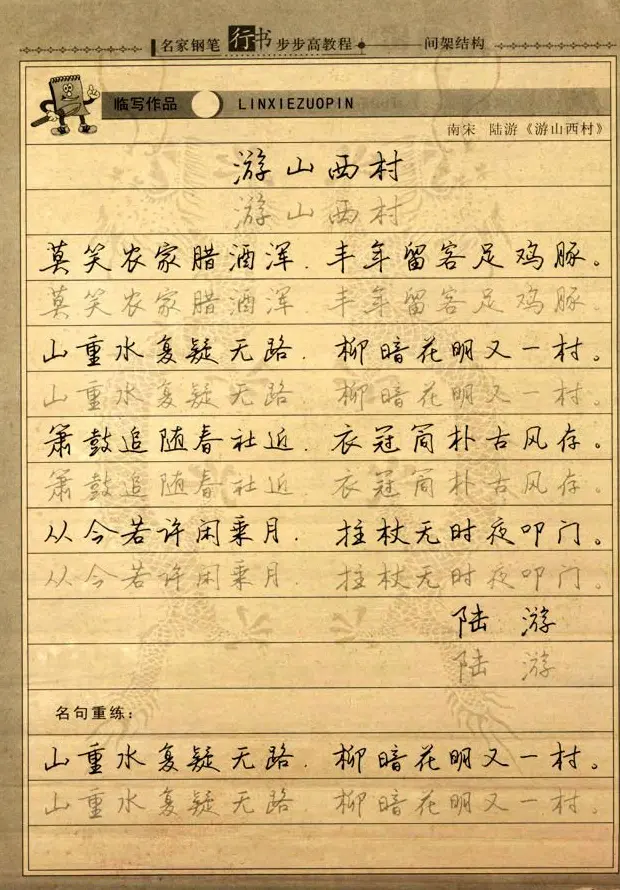 名家钢笔行书步步高教程 间架结构
临写作品 LINXIEZUOPIN
南宋 陆游《游山西村》
游山西村
游山西村
莫笑农家腊酒浑.丰年留客足鸡豚。
莫笑农家腊酒浑.丰年留客足鸡豚。
山重水复疑无路.柳暗花明又一村。
山重水复疑无路.柳暗花明又一村。
箫鼓追随春社近.衣冠简朴古风存。
箫鼓追随春社近.衣冠简朴古风存。
从今若许闲乘月.拄杖无时夜叩门。
从今若许闲乘月.拄杖无时夜叩门。
陆游
陆游
名句重练：
山重水复疑无路.柳暗花明又一村。
山重水复疑无路.柳暗花明又一村。